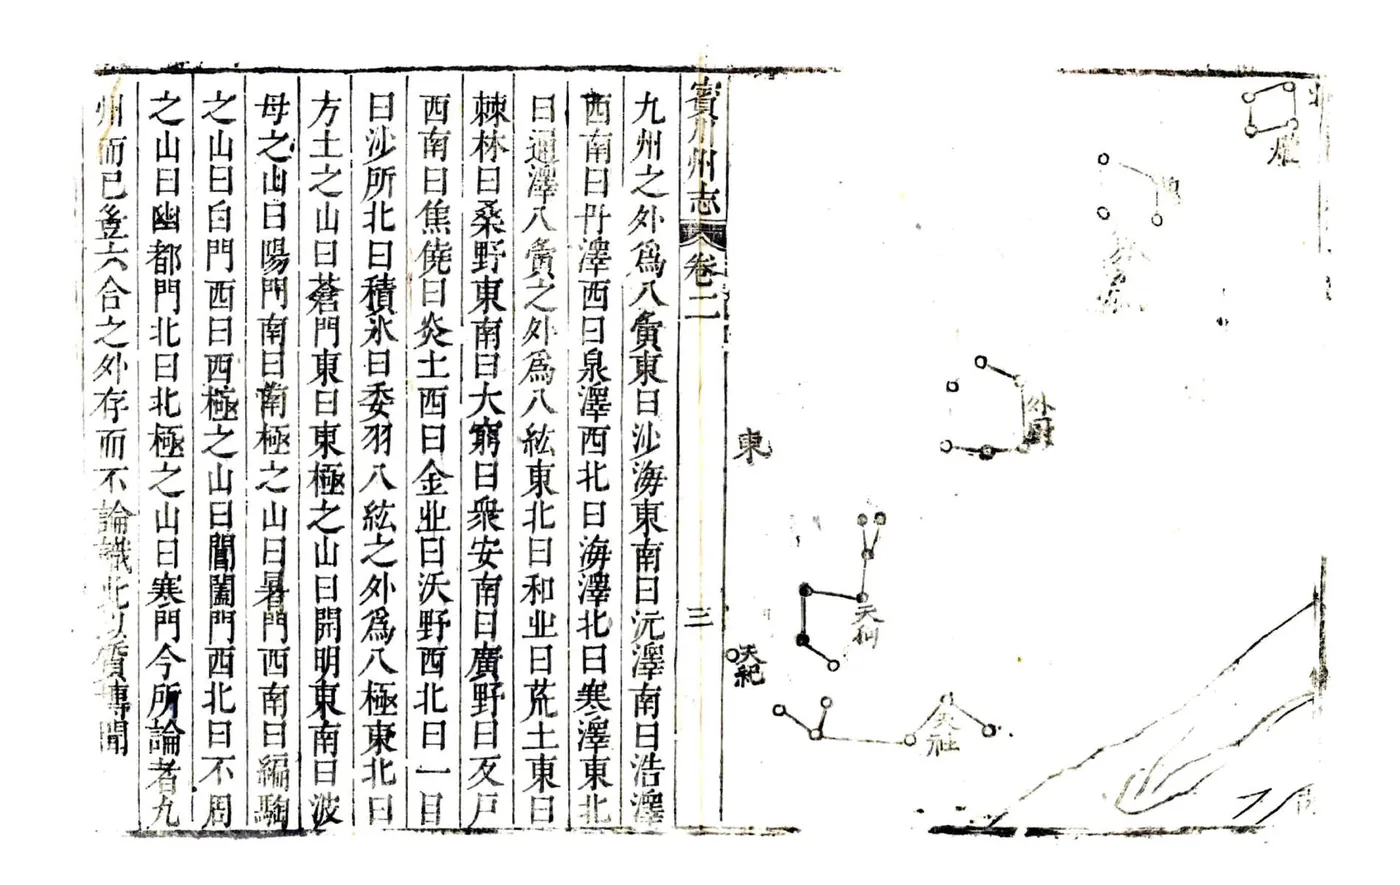 爟
外厨
東
天狗
天紀
天社
賓川州志
卷二
三
九州之外爲八夤東曰沙海東南曰沅澤南曰浩澤
西南曰丹澤西曰泉澤西北曰海澤北曰寒澤東北
曰通澤八夤之外爲八紘東北曰和丠曰荒土東曰
棘林曰桑野東南曰大窮曰衆安南曰廣野曰反戸
西南曰焦僥曰炎土西曰金丠曰沃野西北曰一目
曰沙所北曰積氷曰委羽八紘之外爲八極東北曰
方土之山曰蒼門東曰東極之山曰開明東南曰波
母之山曰陽門南曰南極之山曰暑門西南曰編駒
之山曰白門西曰西極之山曰閶闔門西北曰不周
之山曰幽都門北曰北極之山曰寒門今所論者九
州而已豋六合之外存而不論識此以廣傳聞